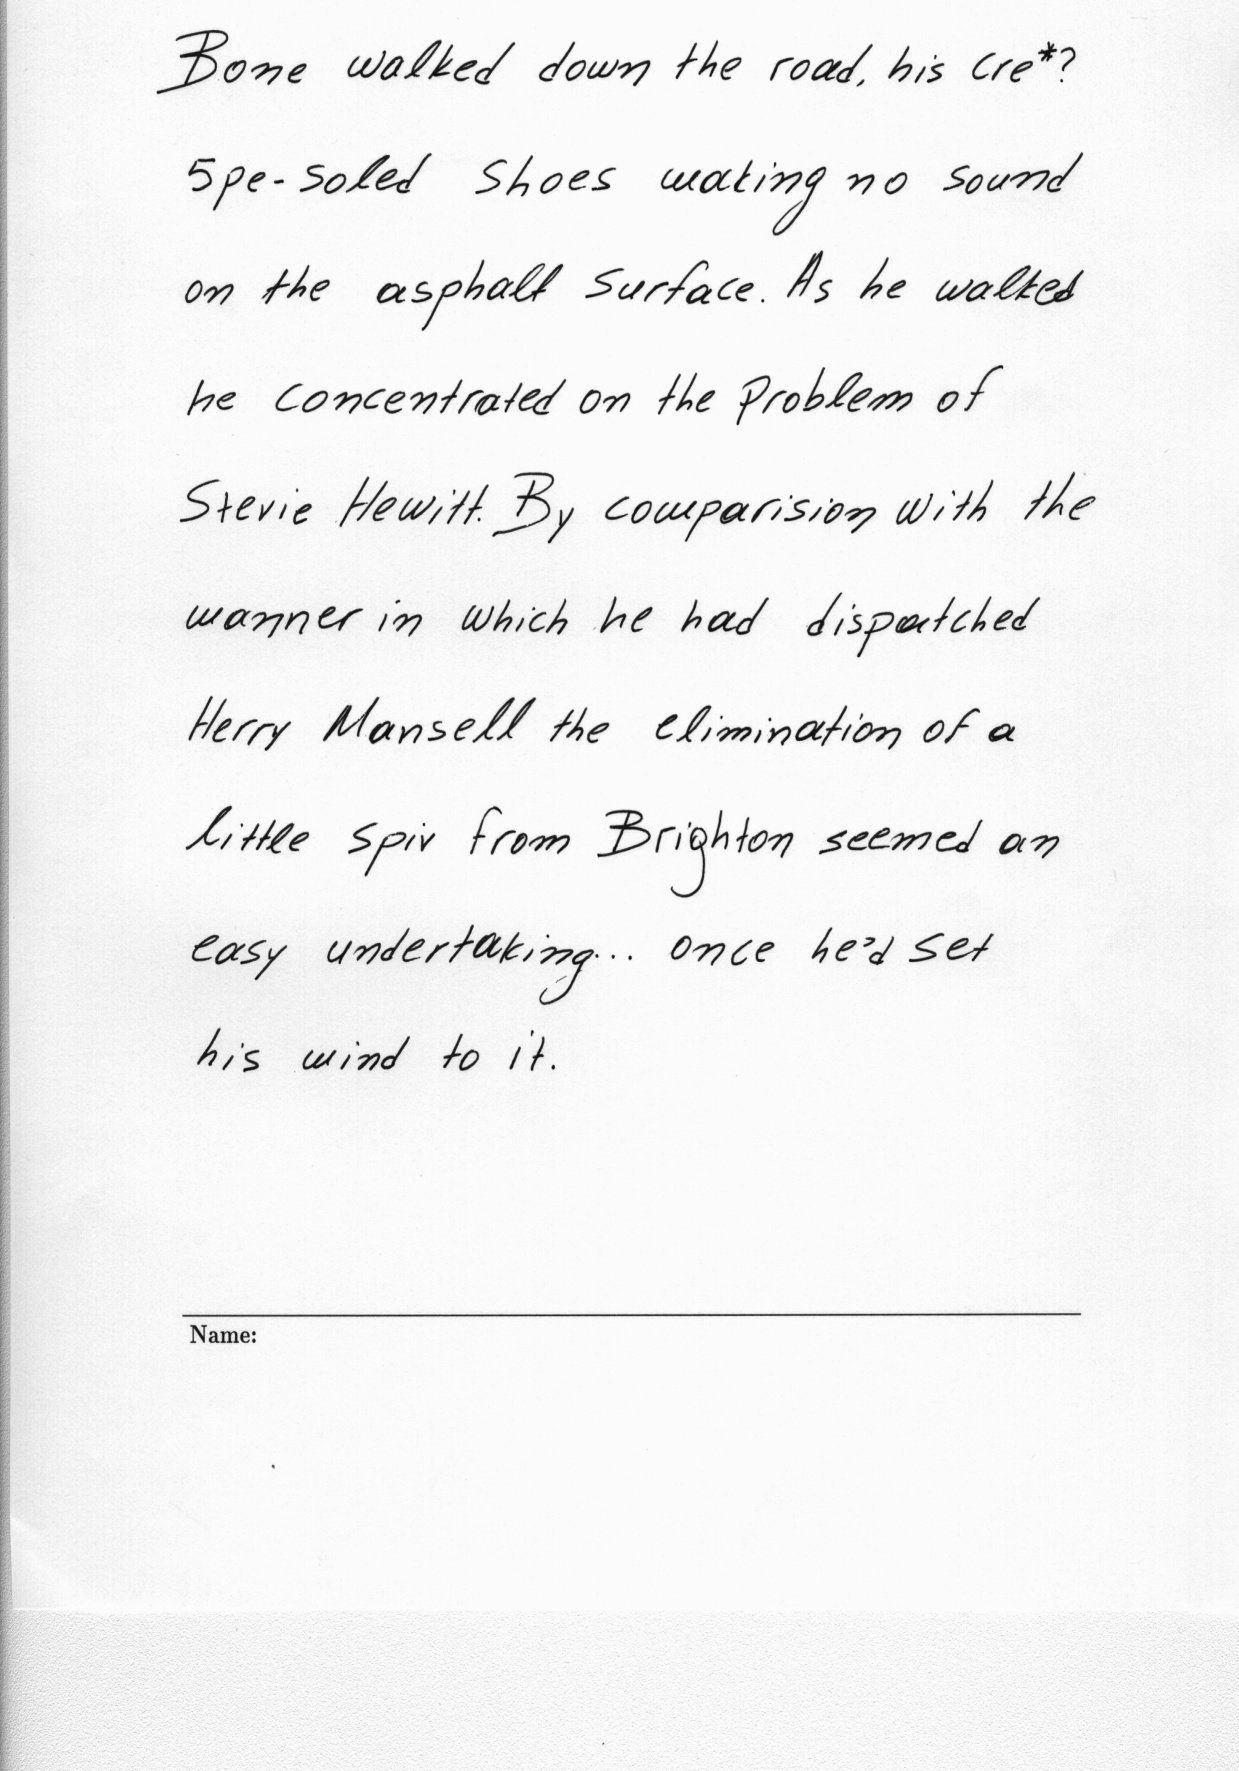 Bone walked down the road, his cre*?
5pe-soled shoes making no sound
on the asphalt surface. As he walked
he concentrated on the problem of
Stevie Hewitt. By comparision with the
manner in which he had dispatched
Herry Mansell the elimination of a
little spiv from Brighton seemed an
easy undertaking... once he'd set
his mind to it.
Name: